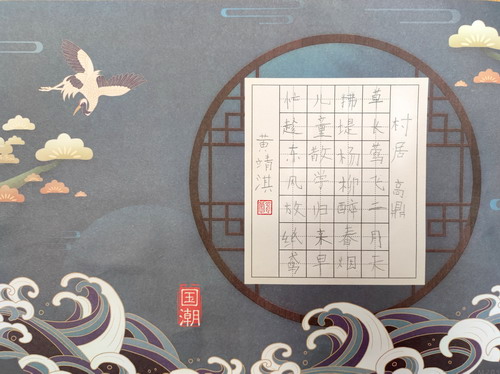 村居 高鼎
草长莺飞二月天
拂堤杨柳醉春烟
儿童散学归来早
忙趁东风放纸鸢
黄靖淇
国潮